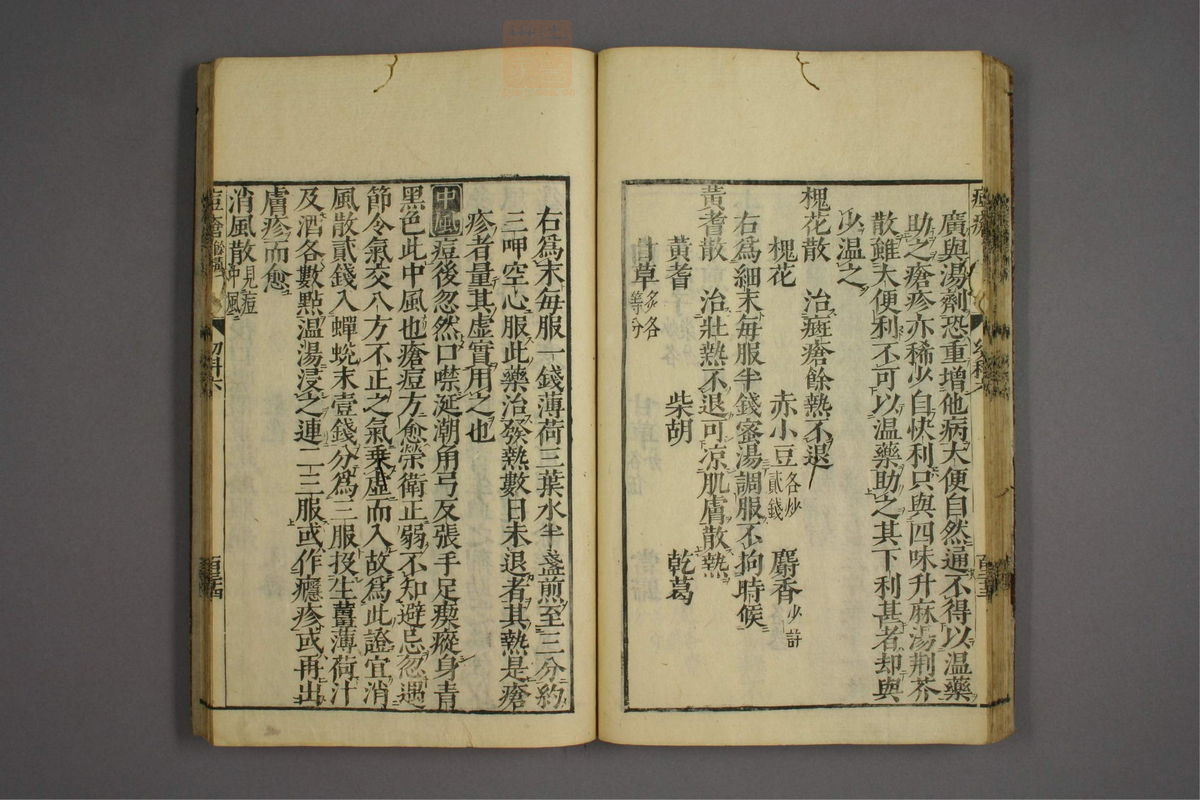 廣與湯劑恐重增他病大便自然通不得以温藥
助之瘡疹亦稀少自快利只與四味升麻湯荆芥
散雖大便利不可以温藥助之其下利甚者却與
以温之
槐花散 治痘瘡餘熱不退
槐花 赤小豆各炒貳錢 麝香少計
右爲細末每服半錢蜜湯調服不拘時候
黃耆散 治壯熱不退可凉肌膚散熱
黃耆 柴胡 乾葛
甘草炙各等分
右爲末每服一錢薄荷三葉水半盞煎至三分約
三呷空心服此藥治發熱數日未退者其熱是瘡
疹者量其虛實用之也
中風 痘後忽然口噤涎潮角弓反張手足瘈瘲身青
黑色此中風也瘡痘方愈榮衛正弱不知避忌忽遇
節令氣交八方不正之氣乗虛而入故爲此證宜消
風散貳錢入蟬蛻末壹錢分爲三服投生薑薄荷汁
及酒各數點温湯浸之連二三服或作癮疹或再出
膚疹而愈
消風散見痘中風
痘瘡 幼科六